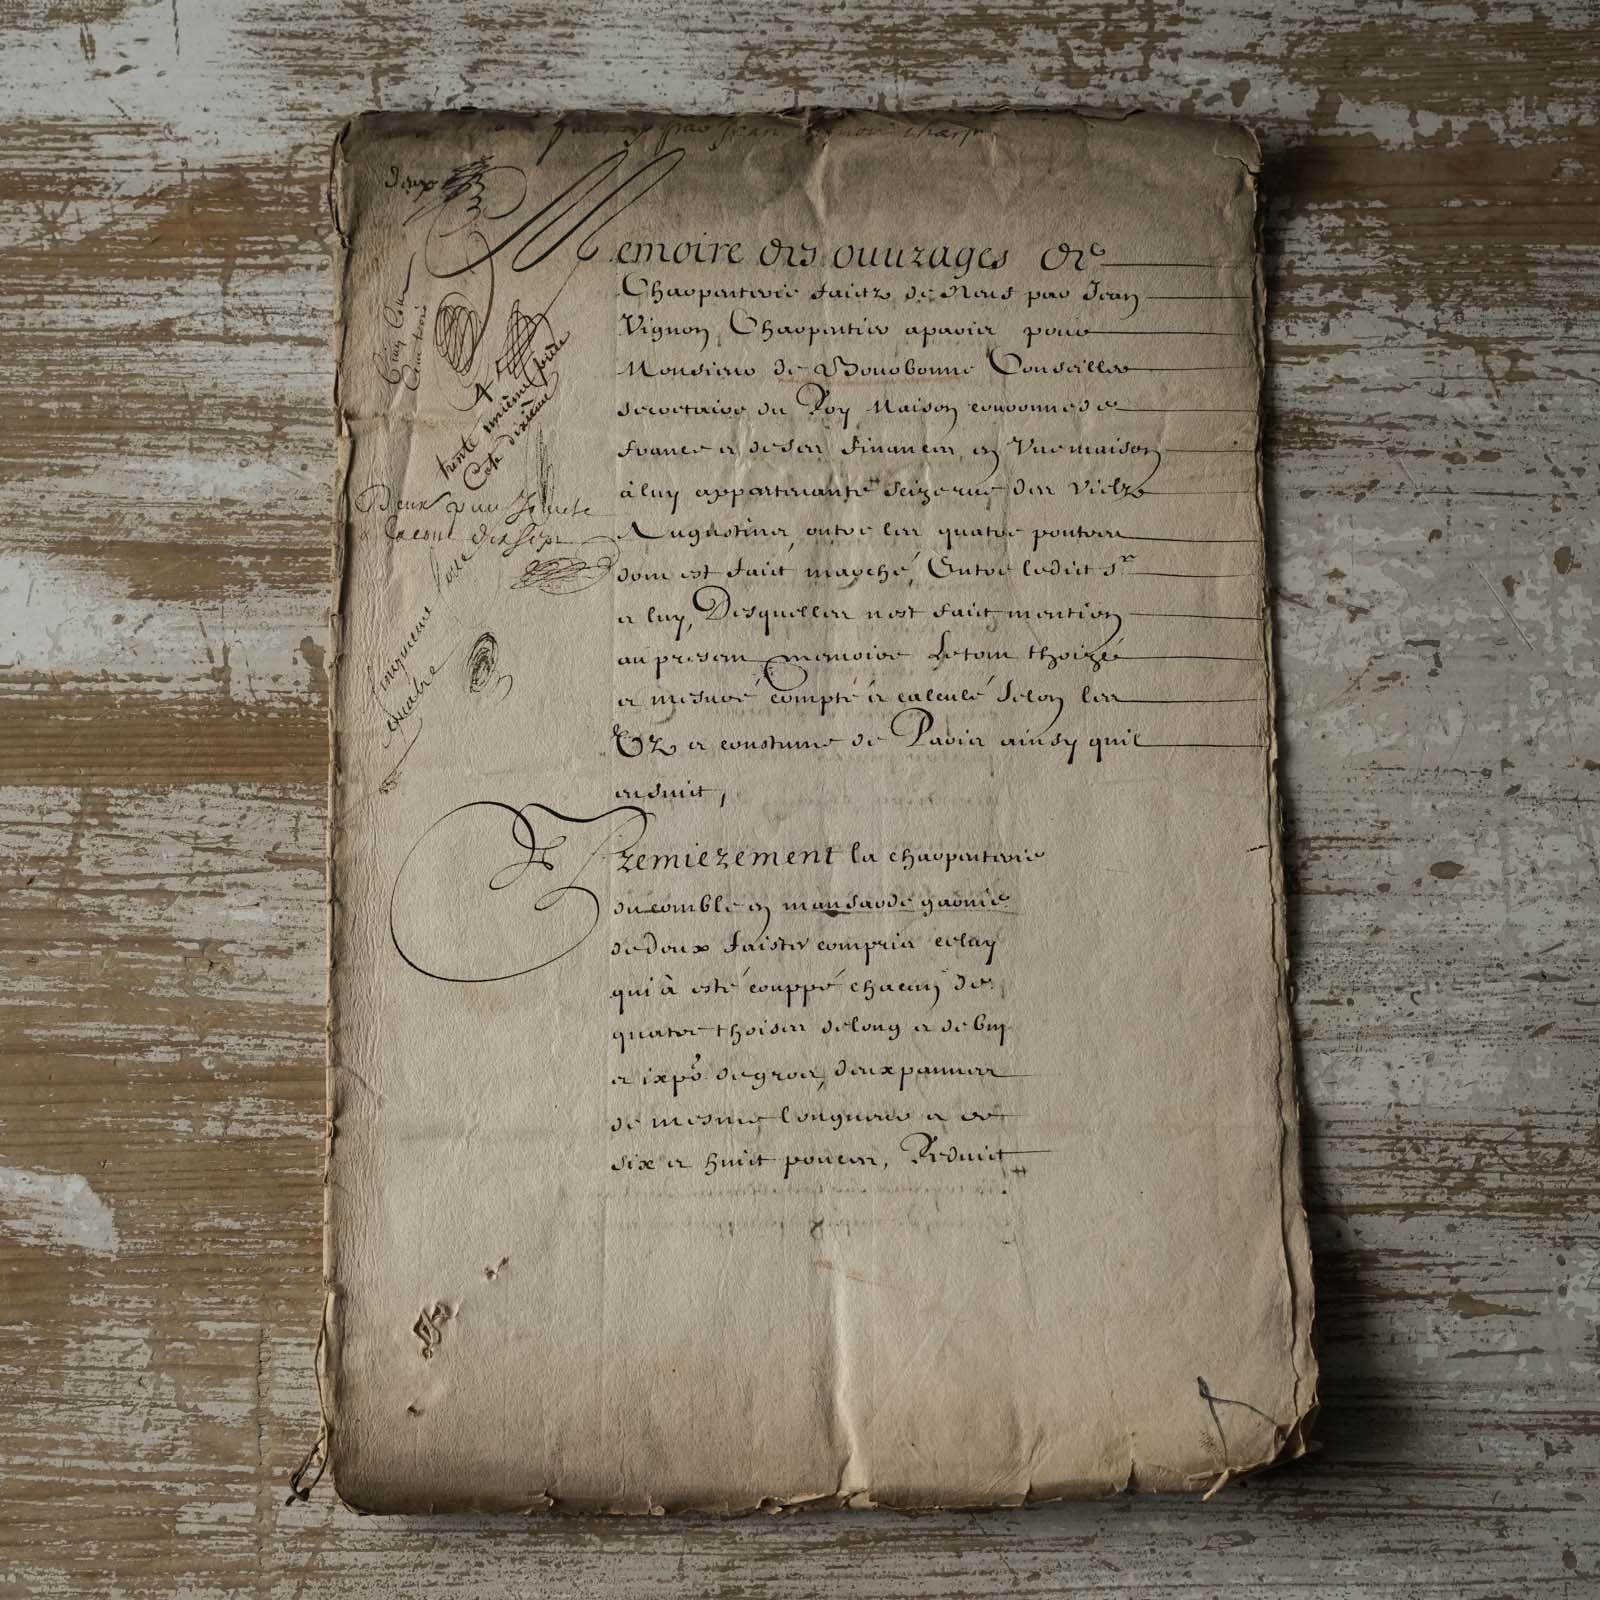 par Jean Vignon charp
deux
Memoire des ouurages de
Charpenterie faitz de Neuf par Jean
Vignon Charpentier aparis pour
Monsieur de Bourbonne Conseiller
secretaire du Roy Maison couronne de
france et deses finances en Vne maison
à luy appartenante seize rue des vielz
Augustins, outre les quatre poutres
dont est fait marché, Entre ledit Sr
et luy, Desquelles nest fait mention
au present memoire Le tout thoizé
et mesuré compté et calculé selon les
Us et coustume de Paris ainsy quil
ensuit,
Premierement la charpenterie
du comble en mansarde garnie
de deux faistes compris celuy
qui à esté couppé chacun de
quatre thoises de long et de
et ix po de gros, deux pannes
de mesme longueur et de
six et huit pouces, Reduit
trente unième pièce
Cote dixieme
Deux pieces